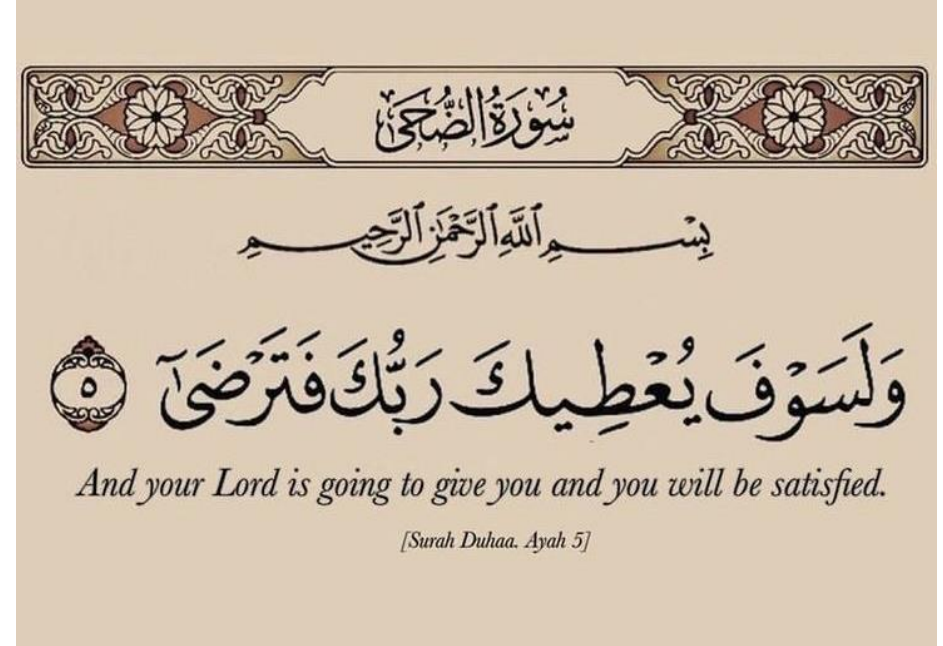 سُورَةُ الضُّحَىٰ
بِسْمِ ٱللَّهِ ٱلرَّحْمَٰنِ ٱلرَّحِيمِ
وَلَسَوْفَ يُعْطِيكَ رَبُّكَ فَتَرْضَىٰٓ ٥
And your Lord is going to give you and you will be satisfied.
[Surah Duhaa. Ayah 5]